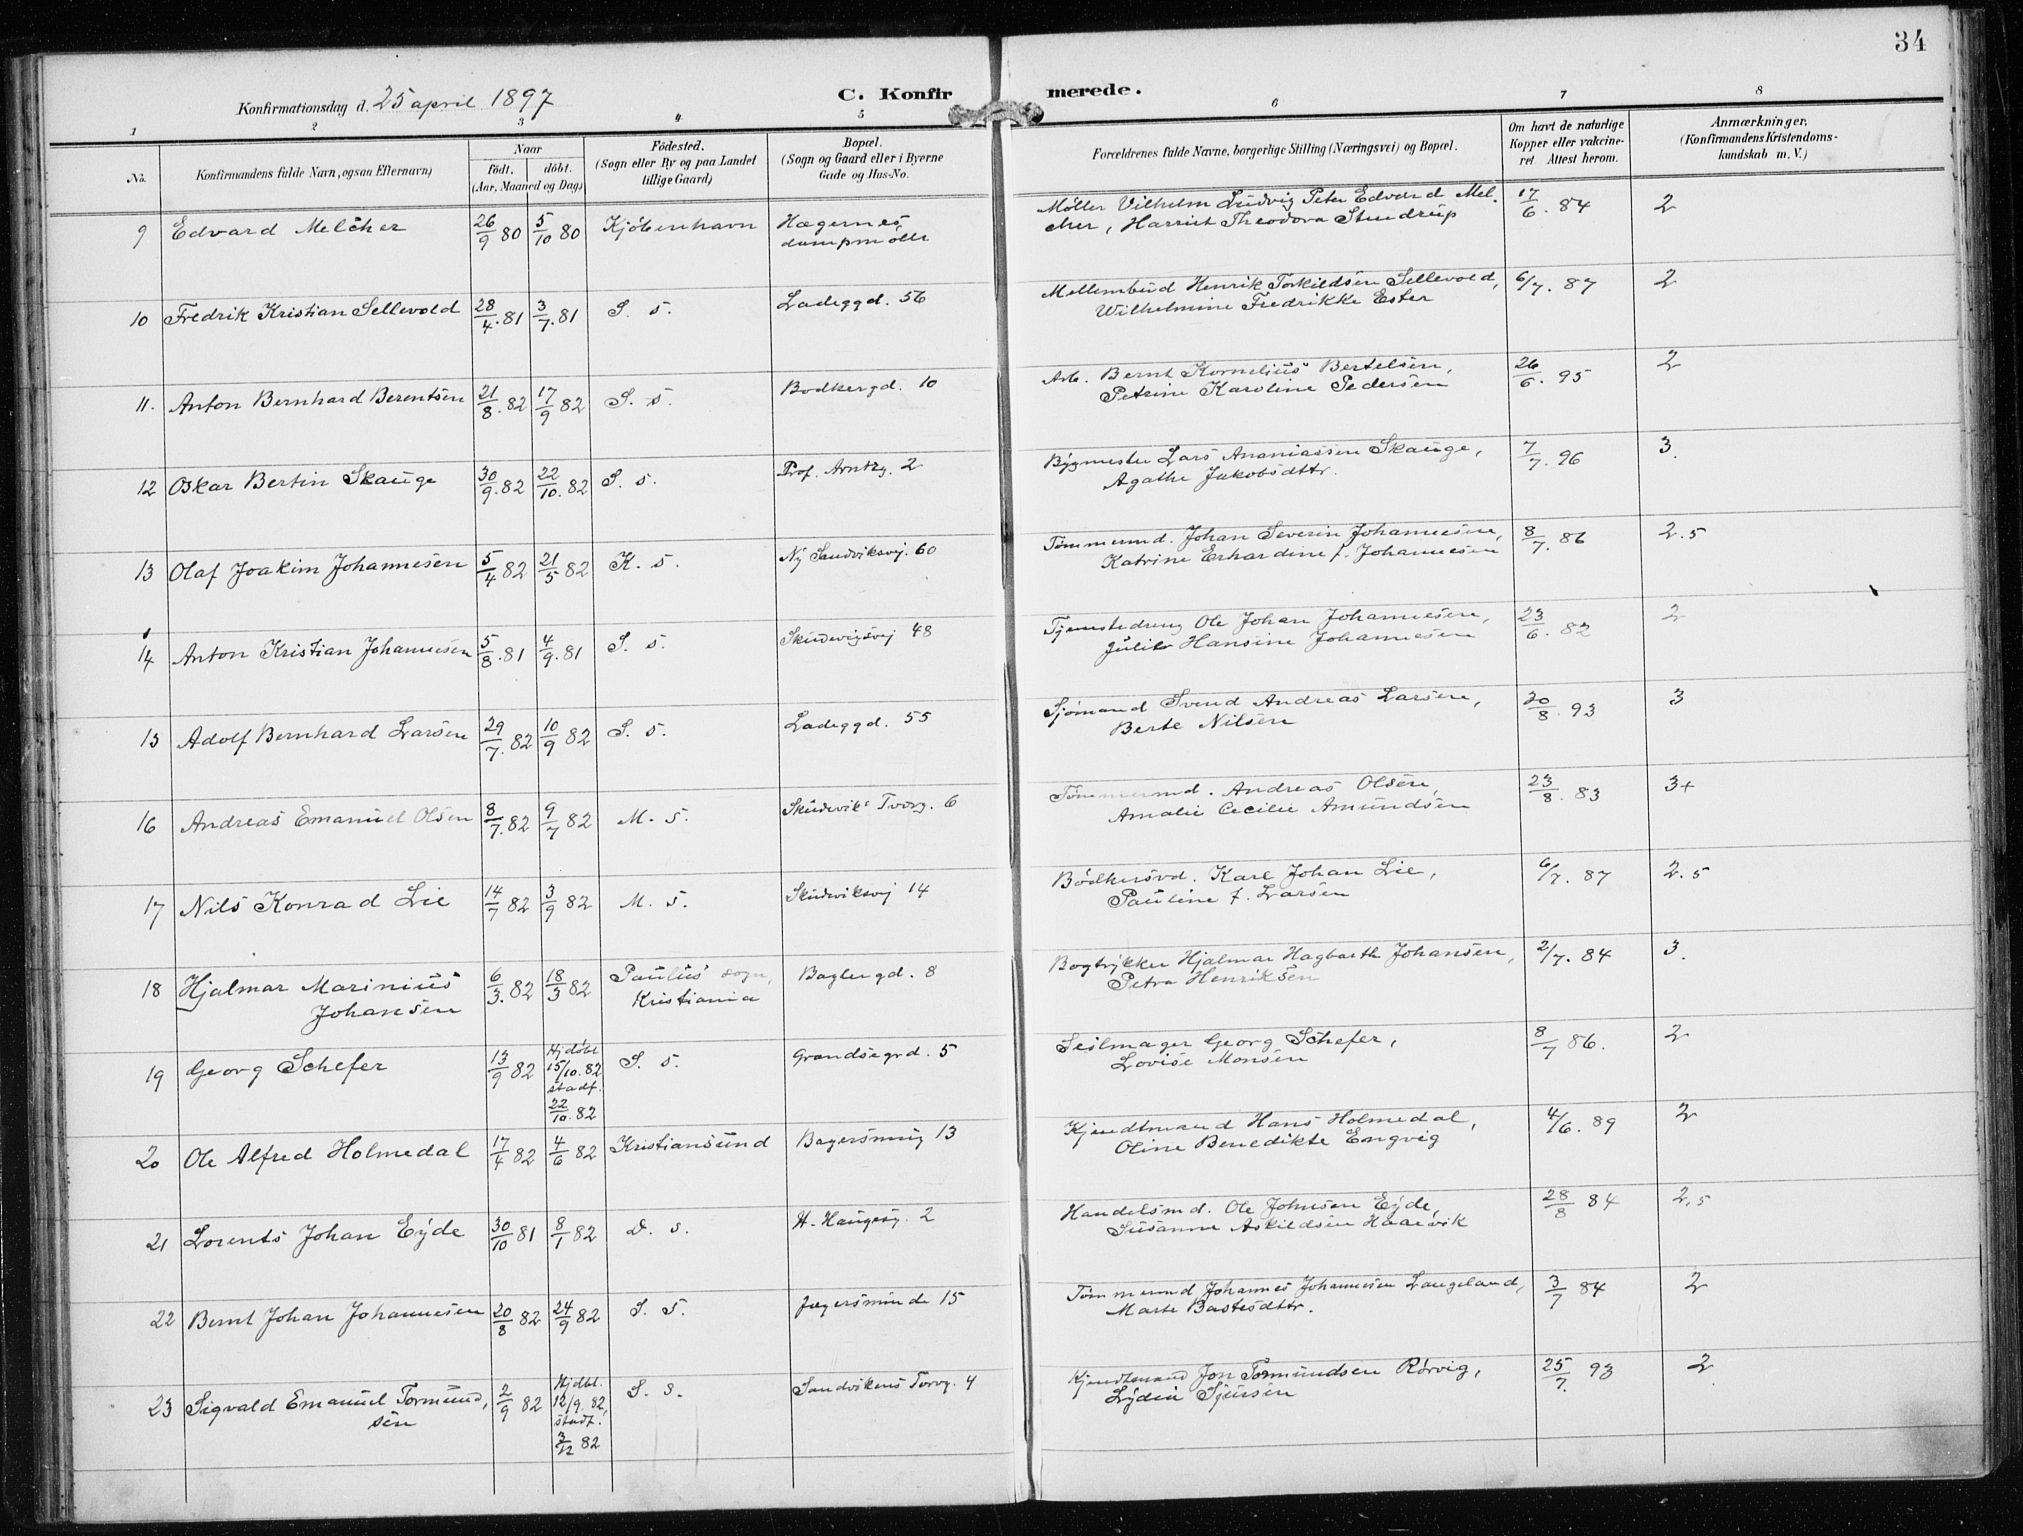 34
Konfirmationsdag d. 25 april 1897
C. Konfirmerede.
1 2 3 4 5 6 7 8
No.
Konfirmandens fulde Navn, ogsaa Efternavn)
Naar
født. døbt.
(Aar, Maaned og Dag)
Fødested.
(Sogn eller By og paa Landet
tillige Gaard)
Bopæl.
(Sogn og Gaard eller i Byerne
Gade og Hus-No.
Forældrenes fulde Navne, borgerlige Stilling (Næringsvei) og Bopæl.
Om havt de naturlige
Kopper eller vakcine-
ret. Attest herom.
Anmærkninger.
(Konfirmandens Kristendoms-
kundskab m. V.)
9 Edvard Melcher 26/9 80 5/10 80 Kjøbenhavn Hegernes
dampmølle
Møller Vilhelm Ludvig Peter Edvard Mel-
cher, Harriet Theodora Stendrup 17/6. 84 2
10 Fredrik Kristian Sellevold 28/4. 81 3/7. 81 S. s. Ladeggd. 56
Mellembud Henrik Torkildsen Sellevold,
Wilhelmine Fredrikke Ester 6/7. 87 2
11. Anton Bernhard Berentsen 21/8. 82 17/9 82 S. s. Bødkergd. 10
Arb. Bernt Kornelius Bertelsen,
Petrine Karoline Pedersen 26/6. 95 2
12 Oskar Bertin Skauge 30/9. 82 22/10. 82 S. s. Prof. Arntzg. 2
Bygmester Lars Ananiassen Skauge,
Agathe Jakobsdttr. 7/7. 96 3.
13 Olaf Joakim Johannesen 5/4 82 21/5 82 K. s. Ny Sandviksvj. 60
Tømmermd. Johan Severin Johannesen,
Katrine Erhardine f. Johannesen 8/7. 86 2.5
14 Anton Kristian Johannesen 5/8. 81 4/9. 81 S. s. Skudevigsvej 48
Tjenestedreng Ole Johan Johannesen,
Julie Hansine Johannesen 23/6. 82 2
15 Adolf Bernhard Larsen 29/7. 82 10/9 82 S. s. Ladeggd. 55
Sjømand Svend Andreas Larsen,
Berte Nilsen 30/8. 93 3
16 Andreas Emanuel Olsen 8/7. 82 9/7 82 M. s. Skudevik's Tvørg. 6
Tømmermd. Andreas Olsen,
Amalie Cecilie Amundsen 23/8. 83 3+
17 Nils Konrad Lie 14/7 82 3/9 82 M. s. Skudeviksvj 14
Bødkersvd. Karl Johan Lie,
Pauline f. Larsen 6/7. 87 2.5
18 Hjalmar Marinius
Johansen 6/3. 82 18/3 82 Paulus sogn,
Kristiania Baglergd. 8
Bogtrykker Hjalmar Hagbarth Johansen,
Petra Henriksen 2/7. 84 3.
19 Georg Schefer 13/9 82 Hjdøbt
15/10. 82
stadf.
22/10. 82 S. s. Grandsegrd. 5
Seilmager Georg Schefer,
Lovise Monsen 8/7 86. 2
20 Ole Alfred Holmedal 17/4 82 4/6 82 Kristiansund Bagersmug 13
Kjendtmand Hans Holmedal,
Oline Benedikte Engvig 4/6. 89 2
21 Lorents Johan Eyde 30/10 81 8/1 82 D. s. H. Haugesg. 2
Handelsmd. Ole Johnsen Eyde,
Susanne Askildsen Haarvik 28/8 84 2,5
22 Bernt Johan Johannesen 20/8 82 24/9 82 S. S. Jægersminde 15
Tømmermd Johannes Johannesen Langeland,
Marte Bastesdttr. 3/7 84 2
23 Sigvald Emanuel Tormund,
sen 2/9 82 Hjdbt.
12/9. 82,
stadf.
3/12 82 S. s. Sandvikens Torvg. 4
Kjendtmand Jon Tormundsen Rørvig,
Lydia Sjursen 25/7. 93 2